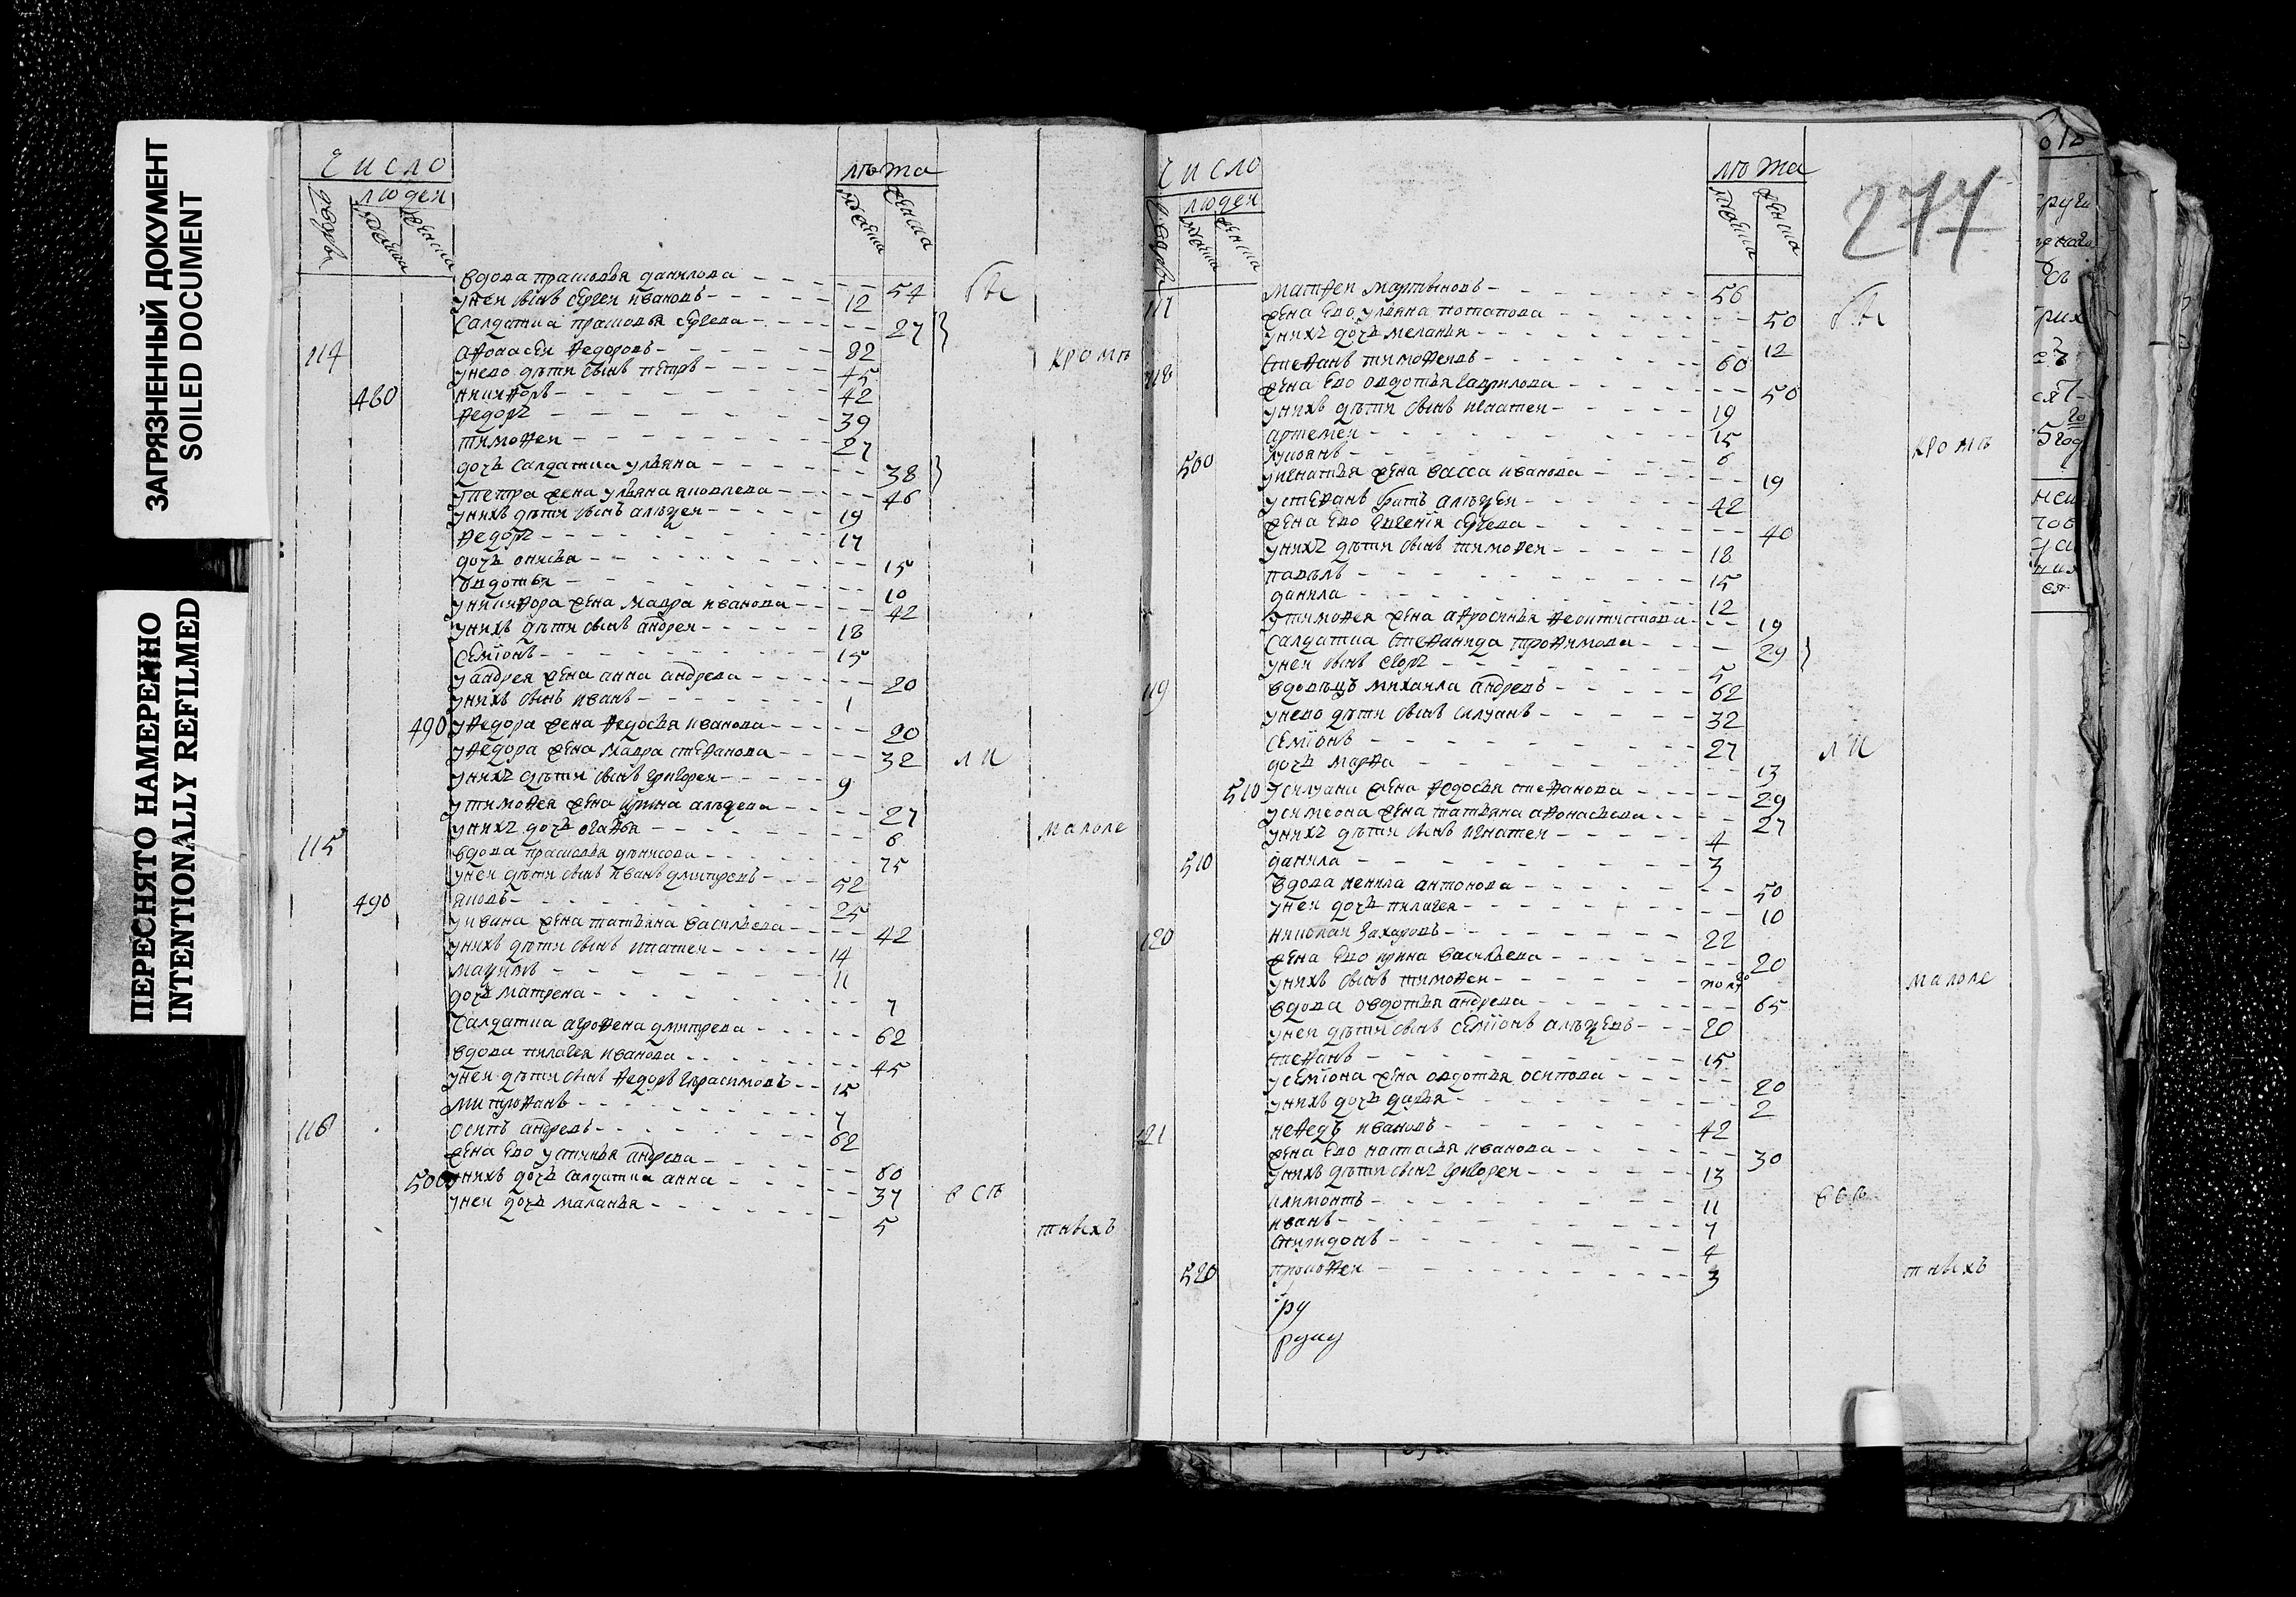 ЗАГРЯЗНЕННЫЙ ДОКУМЕНТ
SOILED DOCUMENT
ПЕРЕСНЯТО НАМЕРЕННО
INTENTIONALLY REFILMED
число лѣта
людей
вдова прасковья данилова 54
у неи сынъ сергеи ивановъ 12
салдатка прасковья сергеева 27
114 афонасеи федоровъ 82 кроме
у нево дѣти сынъ петръ 45
480 никифоръ 42
федоръ 39
тимофеи 27
дочь салдатка ульяна 38
у петра жена ульяна яковлева 46
у нихъ дѣти сынъ алѣксеи 19
федоръ 17
дочь онисья 15
овдотья 10
у никифора жена мавра иванова 42
у нихъ дѣти сынъ андреи 18
семионъ 15
у андрея жена анна андреева 20
у нихъ сынъ иванъ 1
490 у федора жена федосья иванова 20
у федора жена мавра стефанова 32 ли
у нихъ дѣти сынъ григореи 9
у тимофея жена ирина алѣксеева 27
у нихъ дочь агафья 6 малоле
115 вдова прасковья дѣнисова 75
у неи дѣти сынъ иванъ дмитреевъ 52
490 яковъ 25
у ивана жена татьяна васильева 42
у нихъ дѣти сынъ игнатеи 14
максимъ 11
дочь матрена 7
салдатка агрофена дмитреева 62
вдова пилагея иванова 45
у неи дѣти сынъ федоръ гарасимовъ 15
митрофанъ 7
116 осипъ андреевъ 62
жена ево устинья андреева 60
500 у нихъ дочь салдатка анна 37
у неи дочь маланья 5
тныхъ
277
число лѣта
людей
117 матфеи мартыновъ 56
жена ево ульяна потапова 50
у нихъ дочь меланья 12
118 стефанъ тимофеевъ 60
жена ево овдотья гаврилова 50
у нихъ дѣти сынъ игнатеи 19
артемеи 15 кроме
500 лукоянъ 6
у игнатья жена васса иванова 19
у стефана братъ алѣксеи 42
жена ево евгения сергеева 40
у нихъ дѣти сынъ тимофеи 18
павѣлъ 15
данила 12
у тимофея жена афросинья феоктистова 19
салдатка стефанида трофимова 29
у неи сынъ егоръ 5
119 вдовѣцъ михаила андреевъ 62
у нево дѣти сынъ силуанъ 32
семионъ 27 ли
дочь марфа 13
510 у силуана жена федосья стефанова 29
у симеона жена татьяна афонасьева 27
у нихъ дѣти сынъ игнатеи 4
510 данила 3
вдова ненила антонова 50
у неи дочь пилагея 10
120 николаи захаровъ 22
жена ево ирина васильева 20
у нихъ сынъ тимофеи малоле
вдова овдотья андреева 65
у неи дѣти сынъ семионъ алѣксеевъ 20
стефанъ 15
у семиона жена овдотья осипова 20
у нихъ дочь дарья 2
121 нефедъ ивановъ 42
жена ево настасья иванова 30
у нихъ дѣти сынъ григореи 13
климонтъ 11
иванъ 7
спиридонъ 4
520 прокофеи 3 тныхъ
ру
руку